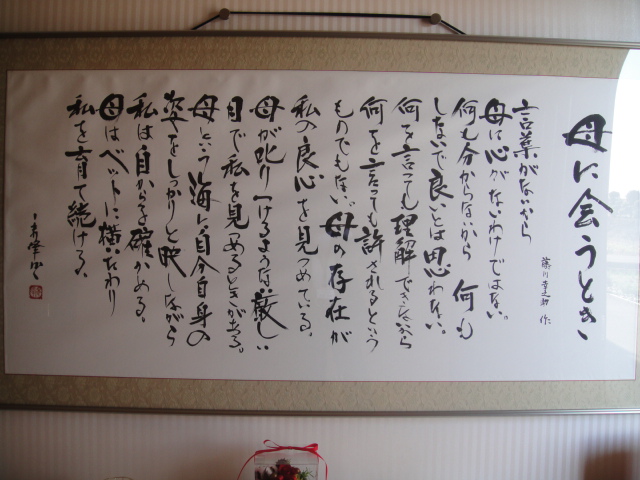 母に会うとき
藤川幸之助 作
言葉がないから
母は心がないわけではない。
何も分からないから 何も
しないで良いとは思わない。
何を言っても理解できないから
何を言っても許されるという
ものでもない。母の存在が
私の良心を見つめている。
母が叱りつけるような厳しい
目で私を見つめるときがある。
母という海に自分自身の
姿をしっかりと映しながら
私は自分を確かめる。
母はベットに横たわり
私を育て続ける。